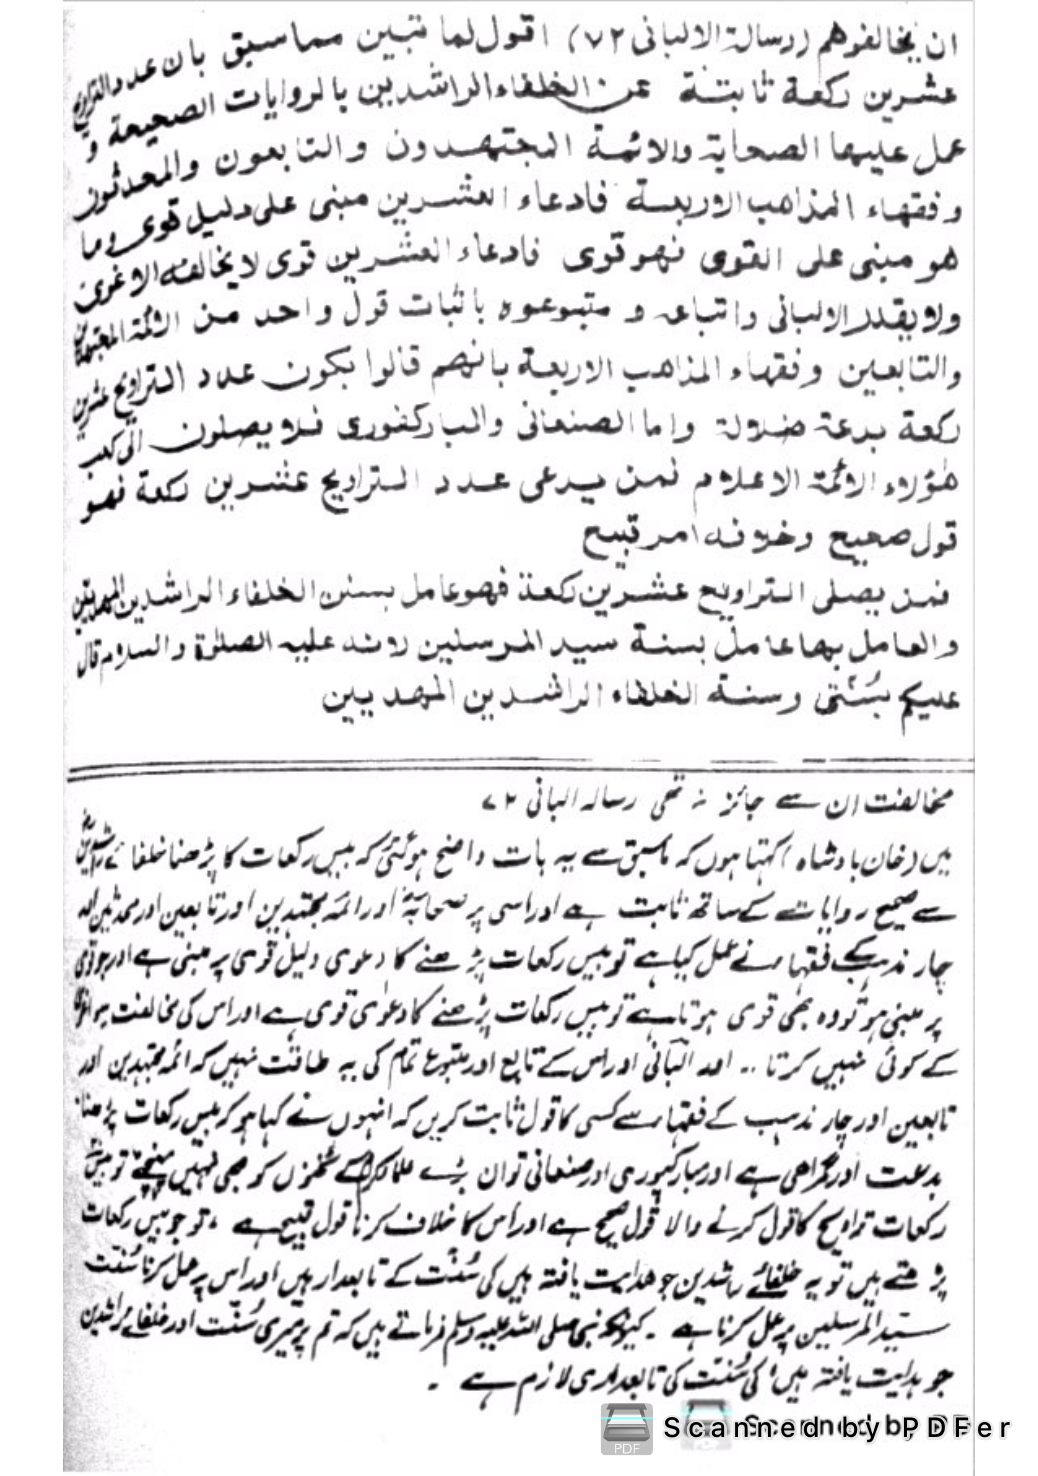 ان يخالفوهم (رسالة الالبانی ۷۲) اقول لما تبين مما سبق بان عدد التراويح
عشرين ركعة ثابتة عن الخلفاء الراشدين بالروايات الصحيحة و
عمل عليها الصحابة والائمة المجتهدون والتابعون والمحدثون
وفقهاء المذاهب الاربعة فادعاء العشرين مبنى على دليل قوى وما
هو مبنى على القوى فهو قوى فادعاء العشرين قوى لا يخالفه الا غوى
ولا يقدر الالبانى واتباعه و متبوعوه باثبات قول واحد من الائمة المجتهدين
والتابعين وفقهاء المذاهب الاربعة بانهم قالوا بكون عدد التراويح عشرين
ركعة بدعة ضلالة واما الصنعانى والمباركفورى فلا يصلون الى كعب
هؤلاء الائمة الاعلام فمن يدعى عدد التراويح عشرين ركعة فهو
قول صحيح وخلافه امر قبيح
فمن يصلى التراويح عشرين ركعة فهو عامل بسنن الخلفاء الراشدين المهديين
والعامل بها عامل بسنة سيد المرسلين لانه عليه الصلوٰة والسلام قال
عليكم بسُنّتى وسنة الخلفاء الراشدين المهديين
مخالفت ان سے جائز نہ تھی رسالہ البانی ۷۲
میں (خان بادشاہ) کہتا ہوں کہ ماسبق سے یہ بات واضح ہوگئی کہ بیس رکعات کا پڑھنا خلفائے راشدین
سے صحیح روایات کے ساتھ ثابت ہے اور اسی پر صحابہؓ اور ائمہ مجتہدین اور تابعین اور محدثین اور
چار مذہب کے فقہاء نے عمل کیا ہے تو بیس رکعات پڑھنے کا دعوی دلیل قوی پر مبنی ہے اور جو قوی
پر مبنی ہو تو وہ بھی قوی ہوتا ہے تو بیس رکعات پڑھنے کا دعوٰی قوی ہے اور اس کی مخالفت سوائے
کے کوئی نہیں کرتا .. اور البانی اور اس کے تابع اور متبوع تمام کی یہ طاقت نہیں کہ ائمہ مجتہدین اور
تابعین اور چار مذہب کے فقہاء سے کسی کا قول ثابت کریں کہ انہوں نے کہا ہو کہ بیس رکعات پڑھنا
بدعت اور گمراهی ہے اور مبارکپوری اور صنعانی تو ان بڑے علماء کرام کے ٹخنوں کو بھی نہیں پہنچے تو بیس
رکعات تراویح کا قول کرنے والا قول صحیح ہے اور اس کا خلاف کرنا قول قبیح ہے ، تو جو بیس رکعات
پڑھتے ہیں تو یہ خلفائے راشدین جو ھدایت یافتہ ہیں کی سُنّت کے تابعدار ہیں اور اس پر عمل کرنا سُنّت
سیّد المرسلین پر عمل کرنا ہے ۔ کیونکہ نبی صلی اللہ علیہ وسلم فرماتے ہیں کہ تم پر میری سُنّت اور خلفائے راشدین
جو ہدایت یافتہ ہیں کی سُنّت کی تابعداری لازم ہے ۔
Scanned by PDFer